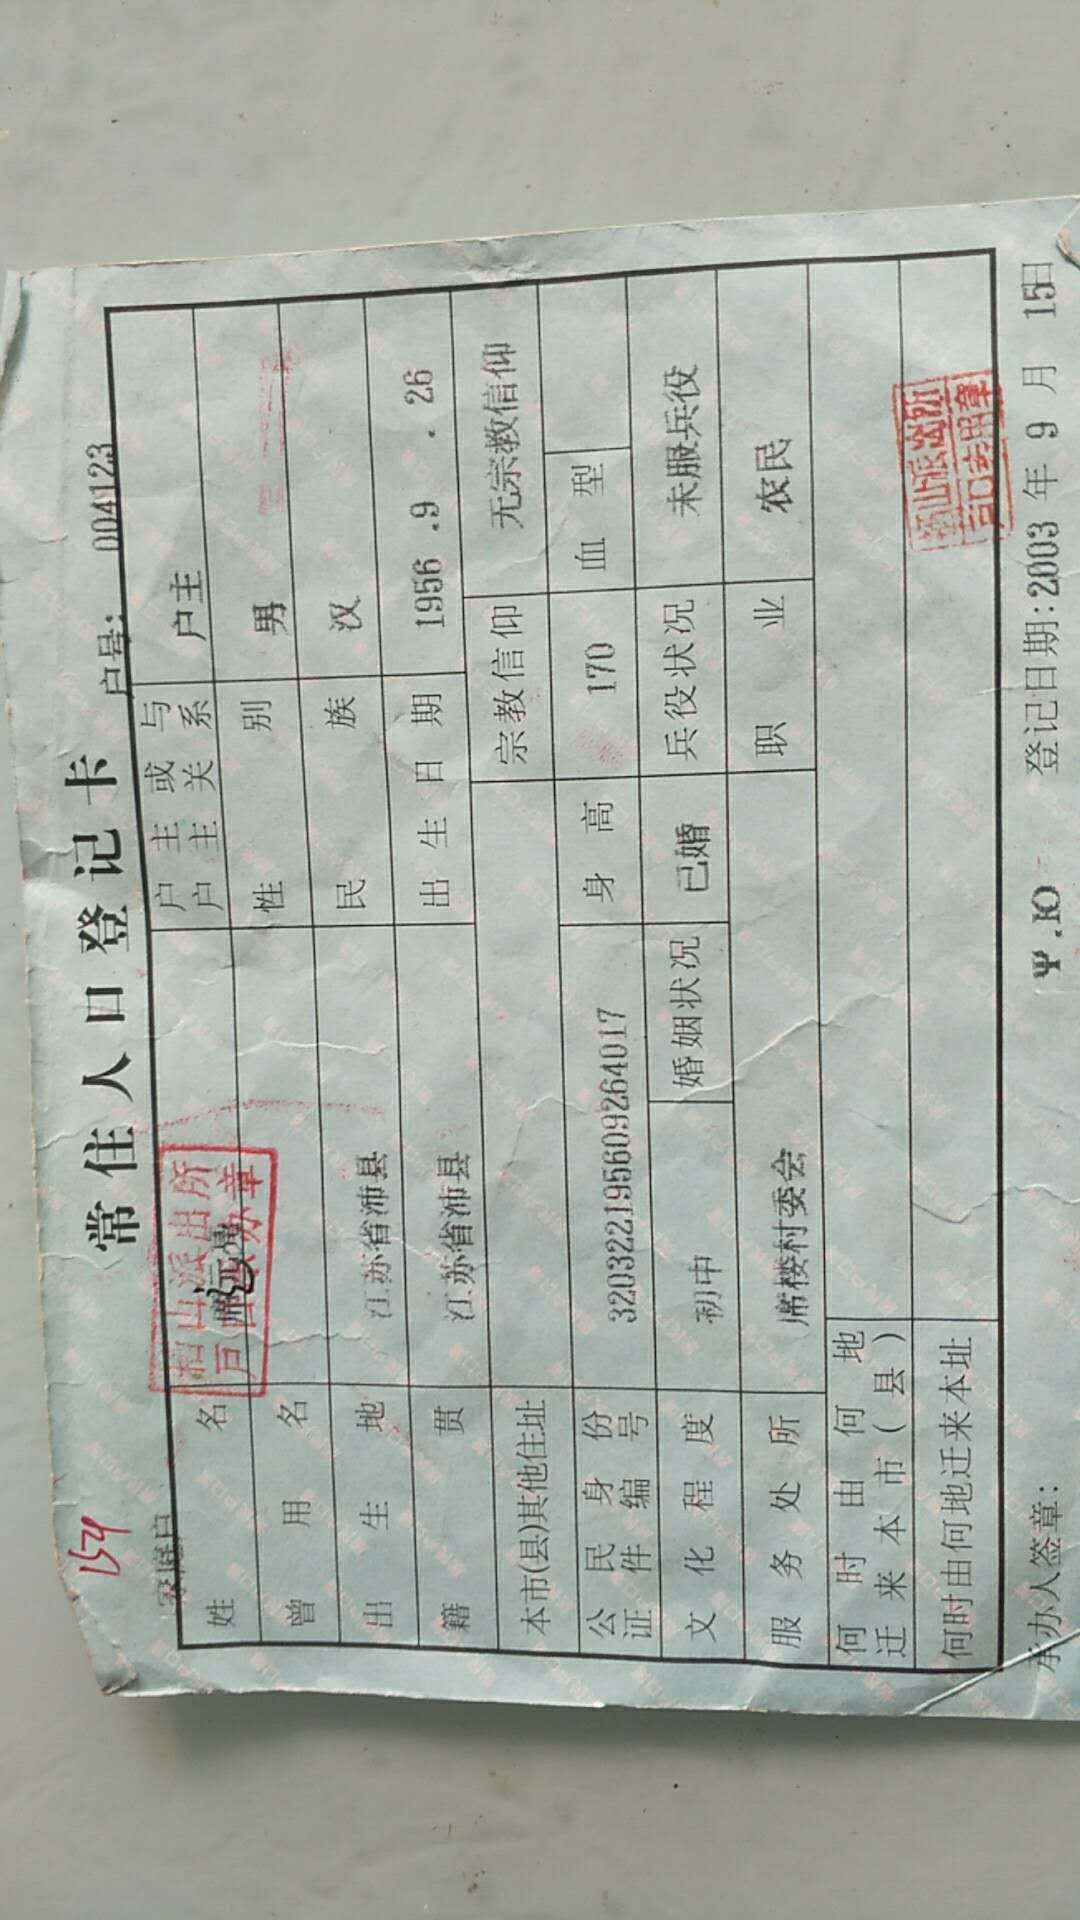 154
常住人口登记卡
家庭户
户号: 004123
姓名 户主或与户主关系 户主
曾用名 性别 男
出生地 江苏省沛县 民族 汉
籍贯 江苏省沛县 出生日期 1956.9.26
本市(县)其他住址 宗教信仰 无宗教信仰
公民身份证件编号 320322195609264017 身高 170 血型
文化程度 初中 婚姻状况 已婚 兵役状况 未服兵役
服务处所 席楼村委会 职业 农民
何时由何地迁来本市(县)
何时由何地迁来本址
承办人签章: 登记日期:2003年9月15日
山派出所
户口专用章